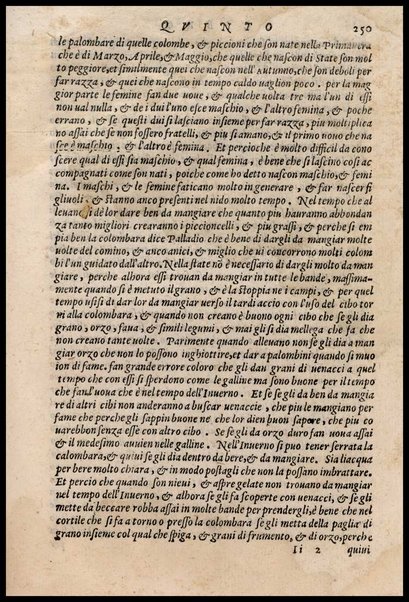 QVINTO 250
le palombare di quelle colombe, & piccioni che son nate nella Primavera
che è di Marzo, Aprile, & Maggio, che quelle che nascon di State son mol
to peggiore, et similmente quei che nascon nell'Autunno, che son deboli per
far razza, & quei che nascono in tempo caldo vaglion poco. per la mag
gior parte le femine fan due uoue, & qualche uolta tre ma l'un di essi
non ual nulla, & de i dui l'uno esce maschio, & l'altro femina, & poche
errano, & se questi dui si lasciano insieme per far razza, piu moltiplica
no assai che se non fossero fratelli, & piu si amano, & il primo nouo che na
sce è maschio: & l'altro è femina. Et percioche è molto difficil da cono
scere qual di essi sia maschio, & qual femina, è bene che si lascino cosi ac
compagnati come son nati, poiche como ho detto nascon maschio, & femi
na. I maschi, & le femine fatican molto in generare, & far nascer fi
gliuoli. & stanno anco presenti nel nido molto tempo. Nel tempo che al
leuano si dè lor dare ben da mangiare che quanto piu hauranno abbondan
za tanto migliori crearanno i piccioncelli, & piu grassi, & perche si em
pia ben la colombara dice Palladio che è bene di dargli da mangiar molte
uolte del comino, & anco anici, & miglio che ui concorrono molti colom
bi l'un guidato dall'altro. Nella state nō è necessario di dargli molto da man
giare, perche alhora essi trouan da mangiar in tutte le bande, massima-
mente quando si è metuto il grano, & è la stoppia ne i campi, & per quel
tempo usisi di dar lor da mangiar uerso il tardi accio con l'uso del cibo tor
ni alla colombara, & quando non creano è buono ogni cibo che se gli dia
grano, orzo, faua, & simili legumi, & mai gli si dia mellega che fa che
non creano tante uolte. Parimente quando alleuano non se gli dia a man
giar orzo che non lo possono inghiottire, et dar a palombini quando si muo
ion di fame. fan grande errore coloro che gli dan grani di uenacci a quel
tempo che con essi si sperdono come le galline ma sono buone per il tempo
che fan l'uoua che è nel tempo dell'Inuerno. Et se se gli da ben da mangia
re di altri cibi non anderanno a buscar uenaccie, che piu le mangiano per
fame che perche gli sappin buone ne che lor dien buon sapore, che piu co
uarebbon senza esse con altro cibo. Se se gli da orzo duro fan uoua assai
& il medesimo auuien nelle galline. Nell'Inuerno si puo tener serrata la
calombara, & quiui se gli dia dentro da bere, & da mangiare. Sia l'acqua
per bere molto chiara, & in modo postagli che non la possano imbrattare.
Et percio che quando son nieui, & aspre gelate non trouano da mangiar
nel tempo dell'Inuerno, & alhora se gli fa scoperte con uenacci, & se gli
mette da beccare robba assai in molte bande per prendergli, è bene che nel
cortile che si fa a torno o presso la colombara se gli metta della paglia di
grano insieme col qual che spiga, & grani di frumento, & di orzo, perche
Ii 2 quiui